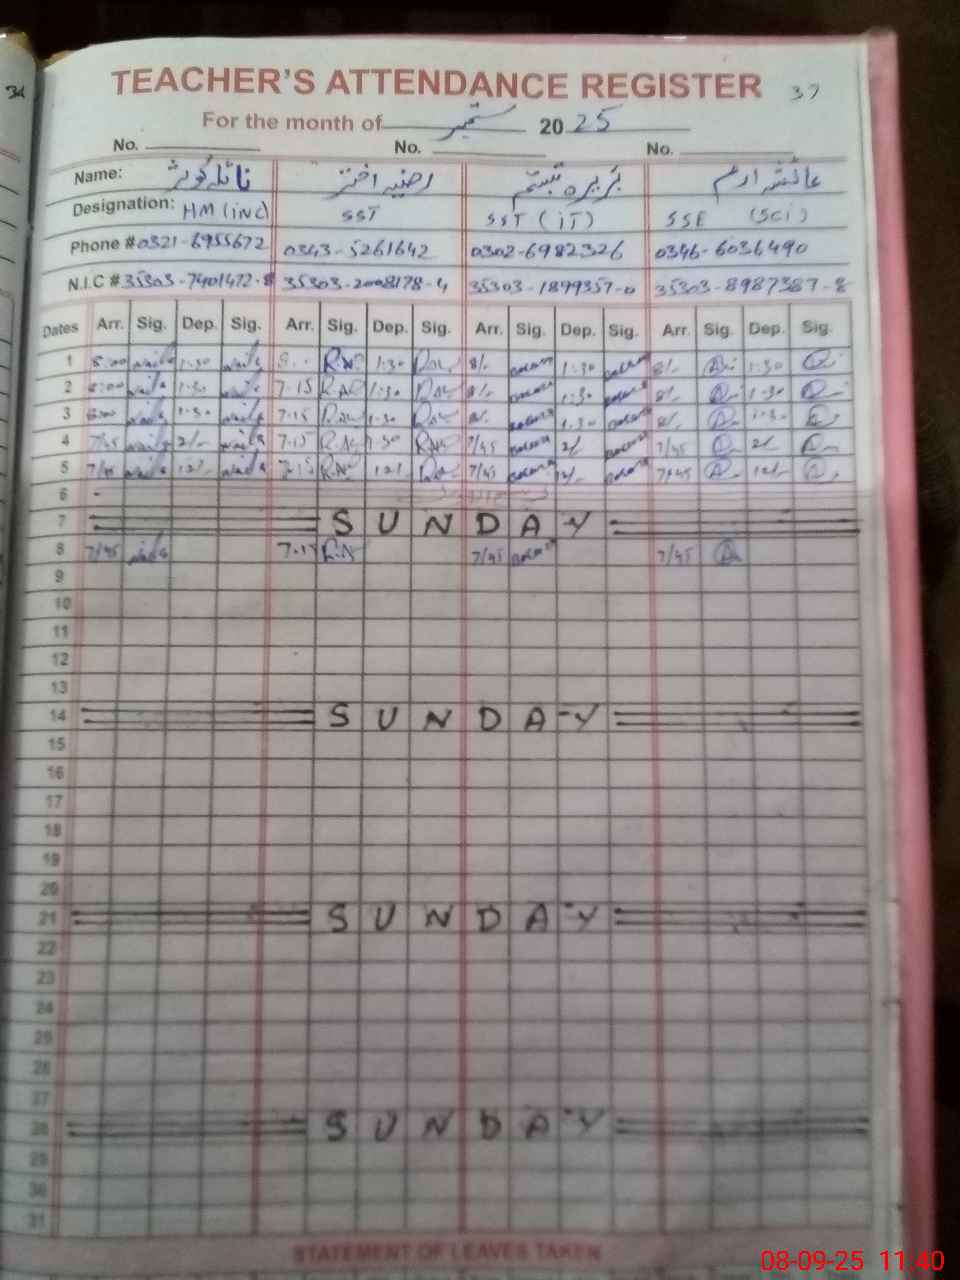 34
TEACHER'S ATTENDANCE REGISTER 37
For the month of ستمبر 2025
No. No. No.
Name: نائلہ کوثر رضیہ اختر بریرہ تبسم عائشہ ارم
Designation: HM (inc) SST SST (iT) SSE (Sci)
Phone # 0321-6955672 0343-5261642 0302-6982326 0346-6036490
N.I.C # 35303-7401472-8 35303-2008178-4 35303-1899357-0 35303-8987387-8
Dates Arr. Sig. Dep. Sig. Arr. Sig. Dep. Sig. Arr. Sig. Dep. Sig. Arr. Sig. Dep. Sig.
1 8:00 1:30 R.N 1:30 8/- 1:30 8/- 1:30
2 8:00 1:30 7-15 1:30 8/- 1:30 8/- 1:30
3 8:00 1:30 7-15 1:30 8/- 1:30 8/- 1:30
4 7/45 2/- 7-15 1:30 7/45 2/- 7/45 2/-
5 7/45 12/- 7-15 R.N 12/- 7/45 12/- 7/45 12/-
6
7 SUNDAY
8 7/45 7-15 R.N 7/45 7/45
9
10
11
12
13
14 SUNDAY
15
16
17
18
19
20
21 SUNDAY
22
23
24
25
26
27
28 SUNDAY
29
30
31
STATEMENT OF LEAVES TAKEN
08-09-25 11:40